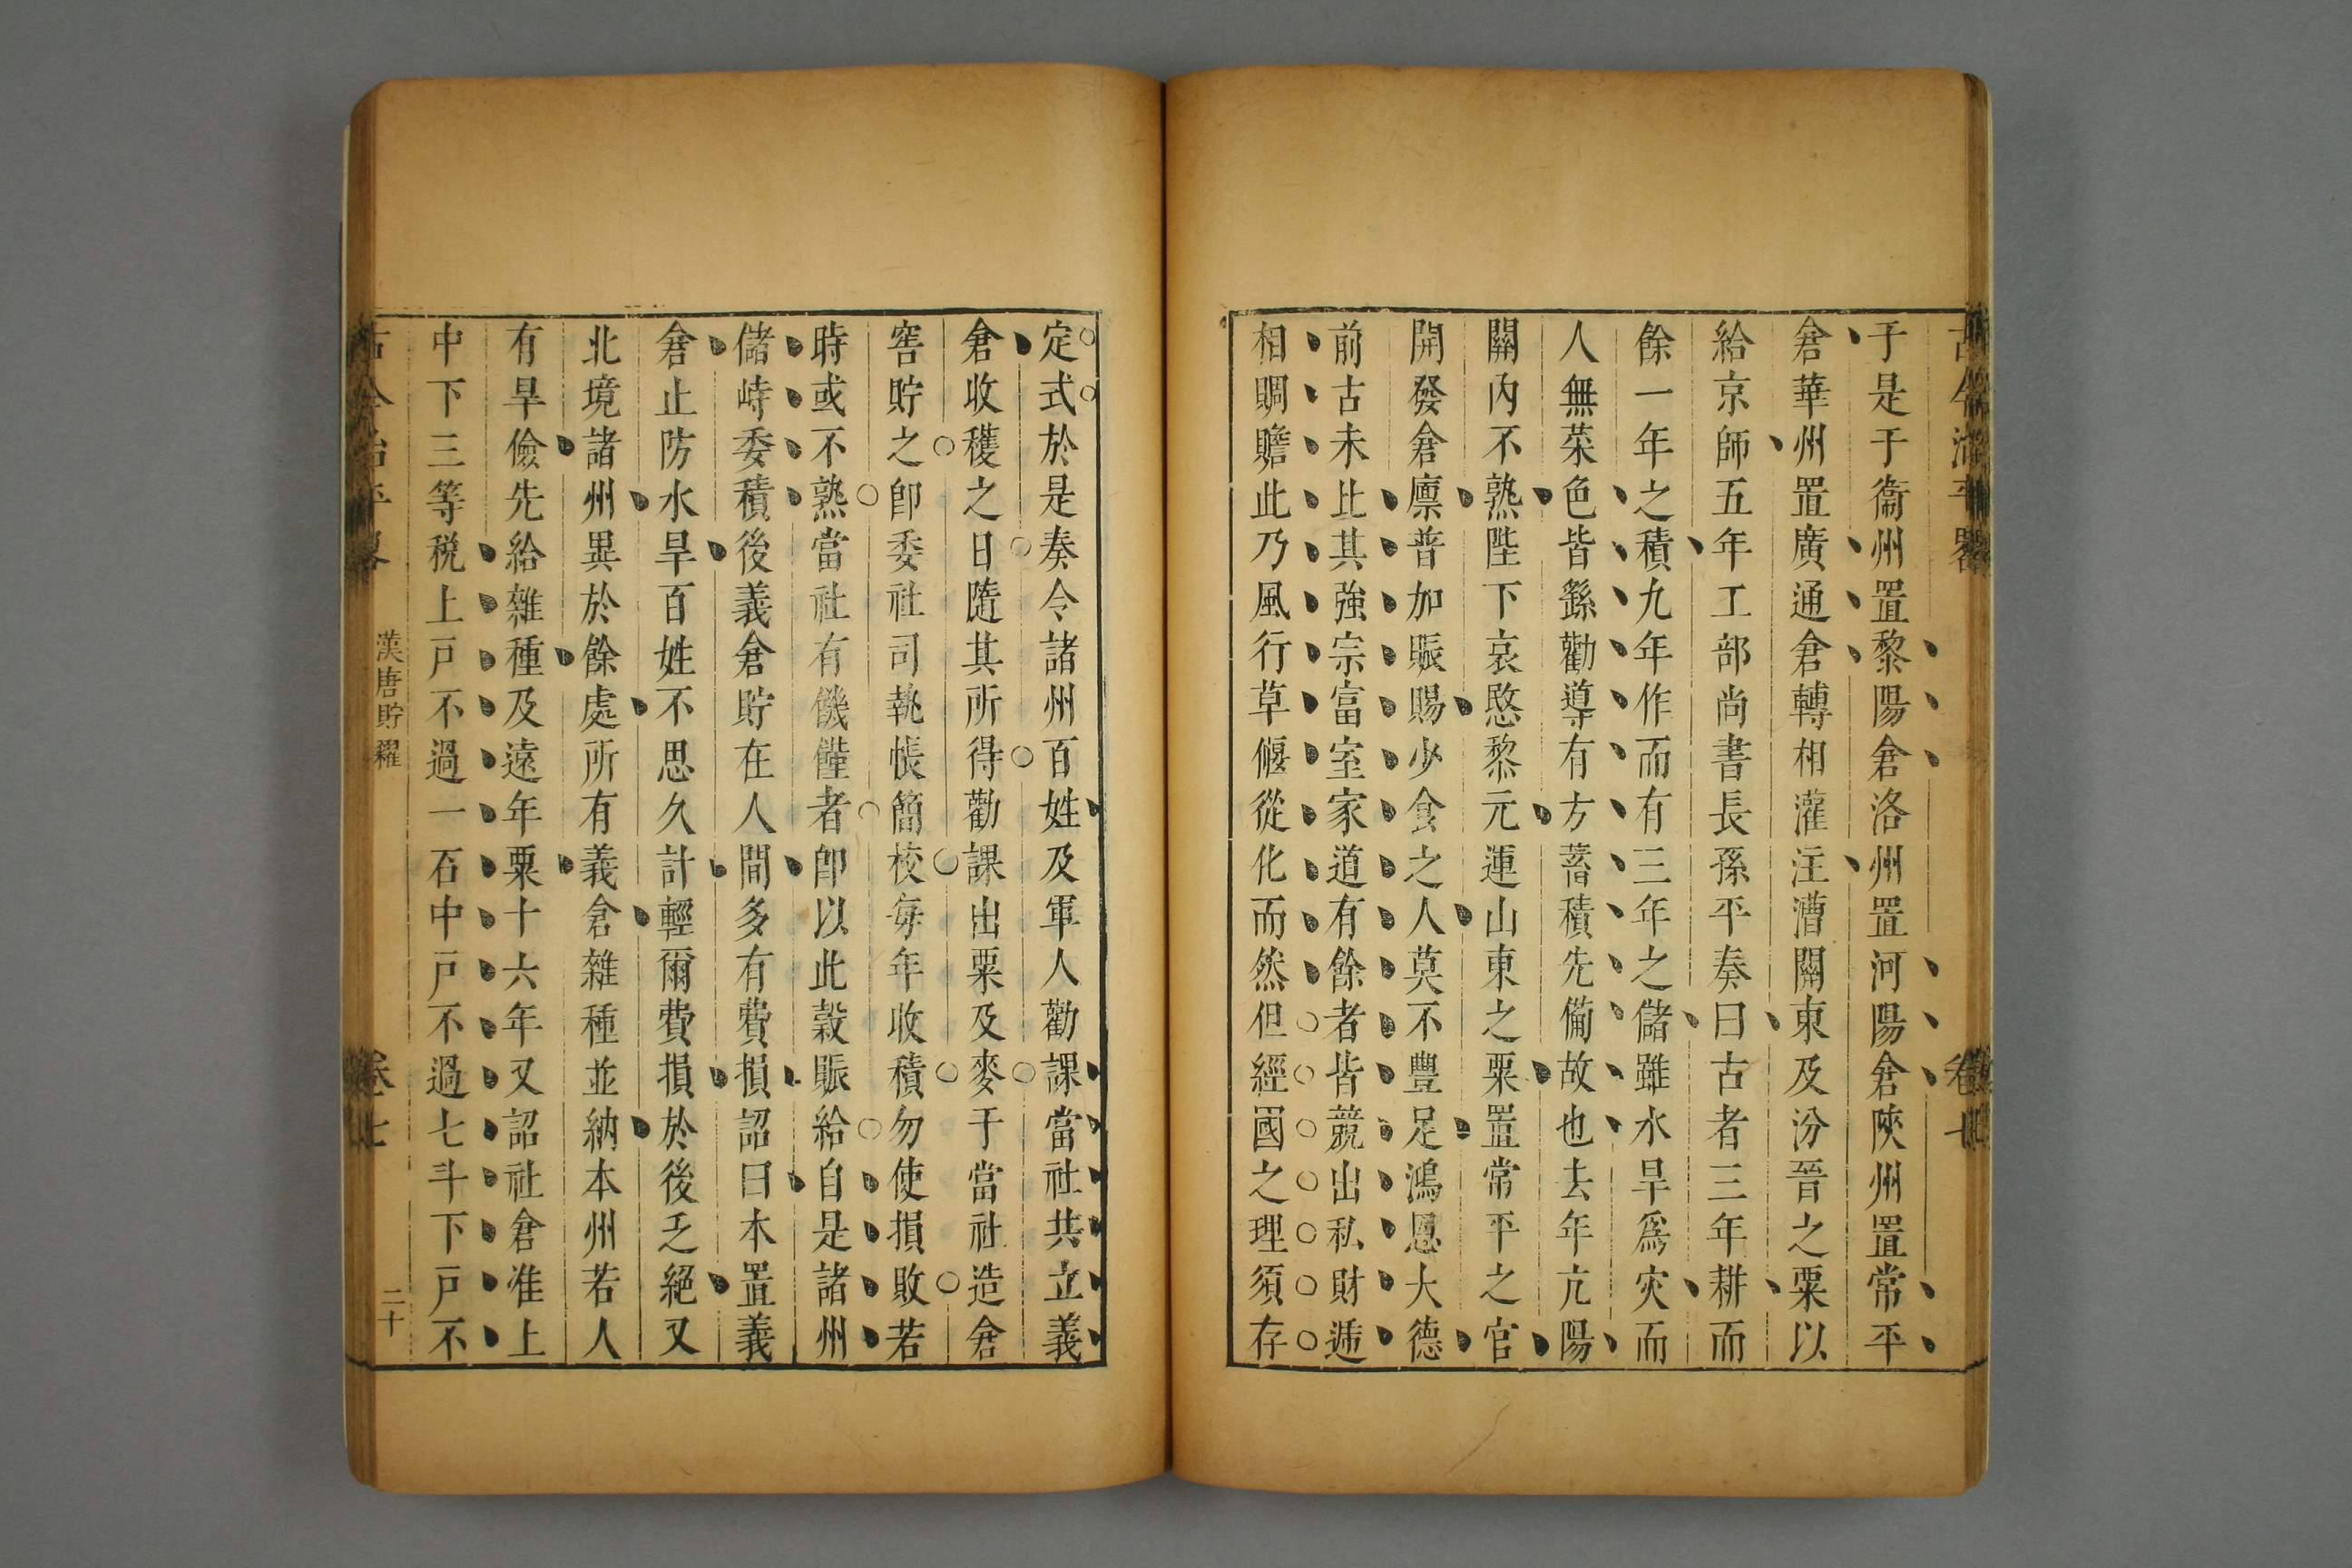 于是于衞州置黎陽倉洛州置河陽倉陝州置常平
倉華州置廣通倉轉相灌注漕關東及汾晉之粟以
給京師五年工部尚書長孫平奏曰古者三年耕而
餘一年之積九年作而有三年之儲雖水旱爲灾而
人無菜色皆繇勸導有方蓄積先備故也去年亢陽
關內不熟陛下哀愍黎元運山東之粟置常平之官
開發倉廪普加賑賜少食之人莫不豐足鴻恩大德
前古未比其強宗富室家道有餘者皆競出私財遞
相賙贍此乃風行草偃從化而然但經國之理須存
定式於是奏令諸州百姓及軍人勸課當社共立義
倉收穫之日隨其所得勸課出粟及麥于當社造倉
窖貯之卽委社司執帳簡校每年收積勿使損敗若
時或不熟當社有饑饉者卽以此穀賑給自是諸州
儲峙委積後義倉貯在人間多有費損詔曰本置義
倉止防水旱百姓不思久計輕爾費損於後乏絕又
北境諸州異於餘處所有義倉雜種並納本州若人
有旱儉先給雜種及遠年粟十六年又詔社倉准上
中下三等稅上戸不過一石中戸不過七斗下戸不
古今治平畧
漢唐貯糴
卷七
二十